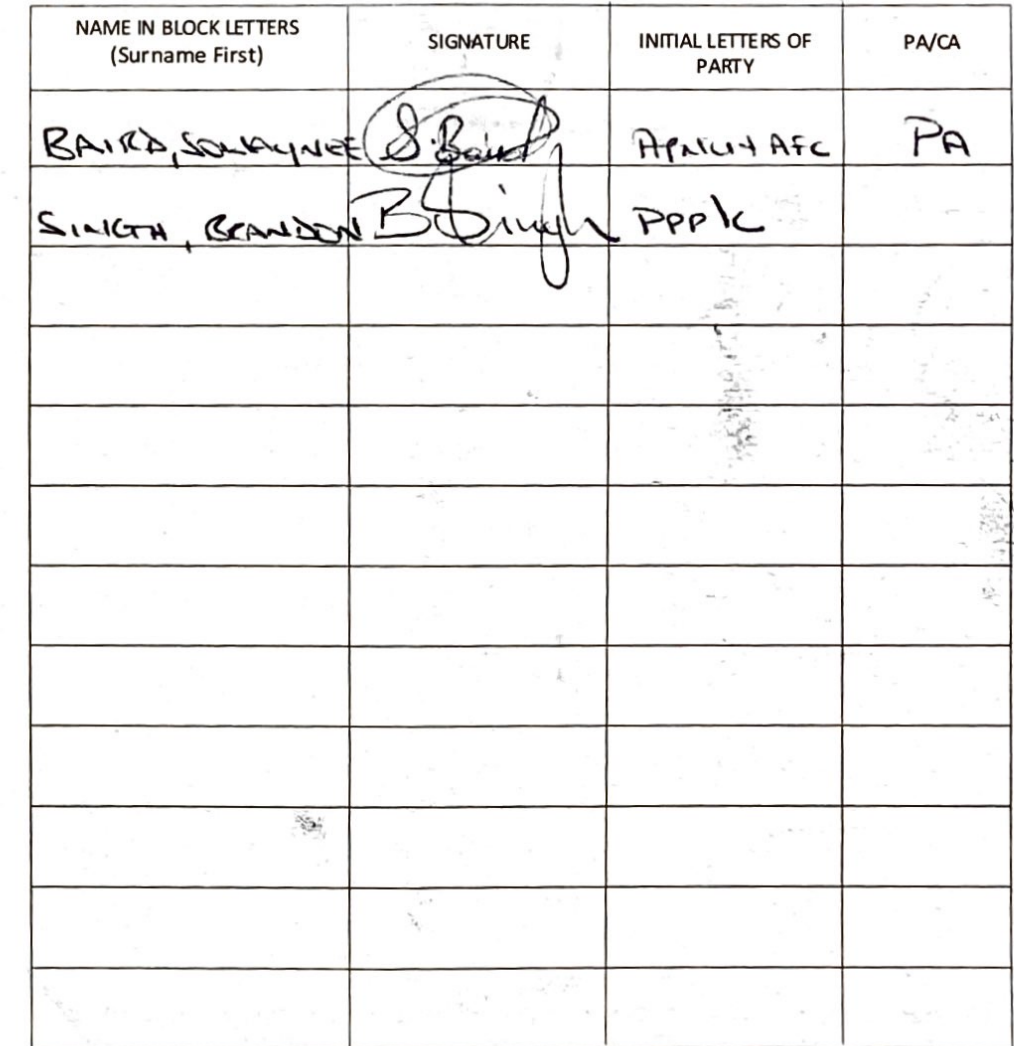 NAME IN BLOCK LETTERS (Surname First) SIGNATURE INITIAL LETTERS OF PARTY PA/CA
BAIRD, S. Baird AFC PA
SINGH, BRANDON B Singh PPP/C